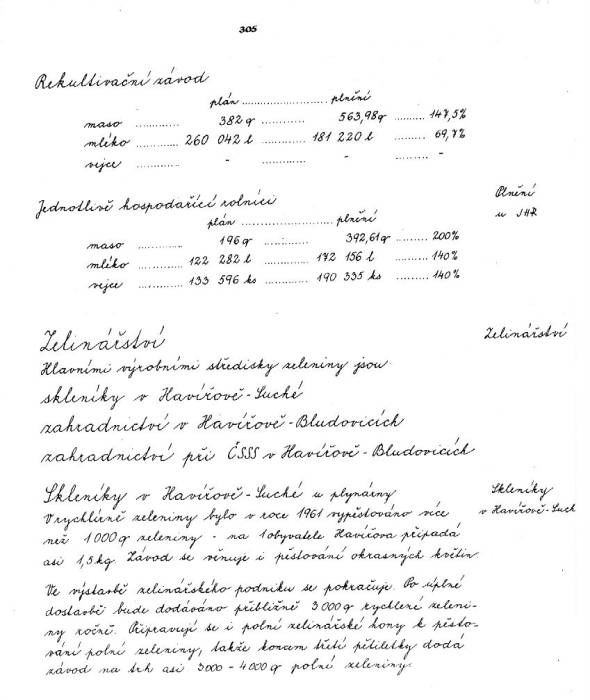 305
Rekultivační závod
plán ........................ plnění
maso ............ 382 q ............ 563,98 q ......... 147,5%
mléko ............ 260 042 l ............ 181 220 l ......... 69,7%
vejce ............ - ............ - ......... -
Jednotlivě hospodařící rolníci
Plnění
u JHR
plán ........................ plnění
maso ............ 196 q ............ 392,61 q ......... 200%
mléko ............ 122 282 l ............ 172 156 l ......... 140%
vejce ............ 133 596 ks ............ 190 335 ks ......... 140%
Zelinářství
Zelinářství
Hlavními výrobními středisky zeleniny jsou
skleníky v Havířově-Suché
zahradnictví v Havířově-Bludovicích
zahradnictví při ČSSS v Havířově-Bludovicích
Skleníky v Havířově-Suché u plynárny
Skleníky
v Havířově-Such
V rychlírně zeleniny bylo v roce 1961 vypěstováno více
než 1 000 q zeleniny - na 1 obyvatele Havířova připadá
asi 1,5 kg. Závod se věnuje i pěstování okrasných květin.
Ve výstavbě zelinářského podniku se pokračuje. Po úplné
dostavbě bude dodáváno přibližně 3 000 q rychlené zeleni-
ny ročně. Připravují se i polní zelinářské hony k pěsto-
vání polní zeleniny, takže koncem třetí pětiletky dodá
závod na trh asi 3000 - 4 000 q polní zeleniny.